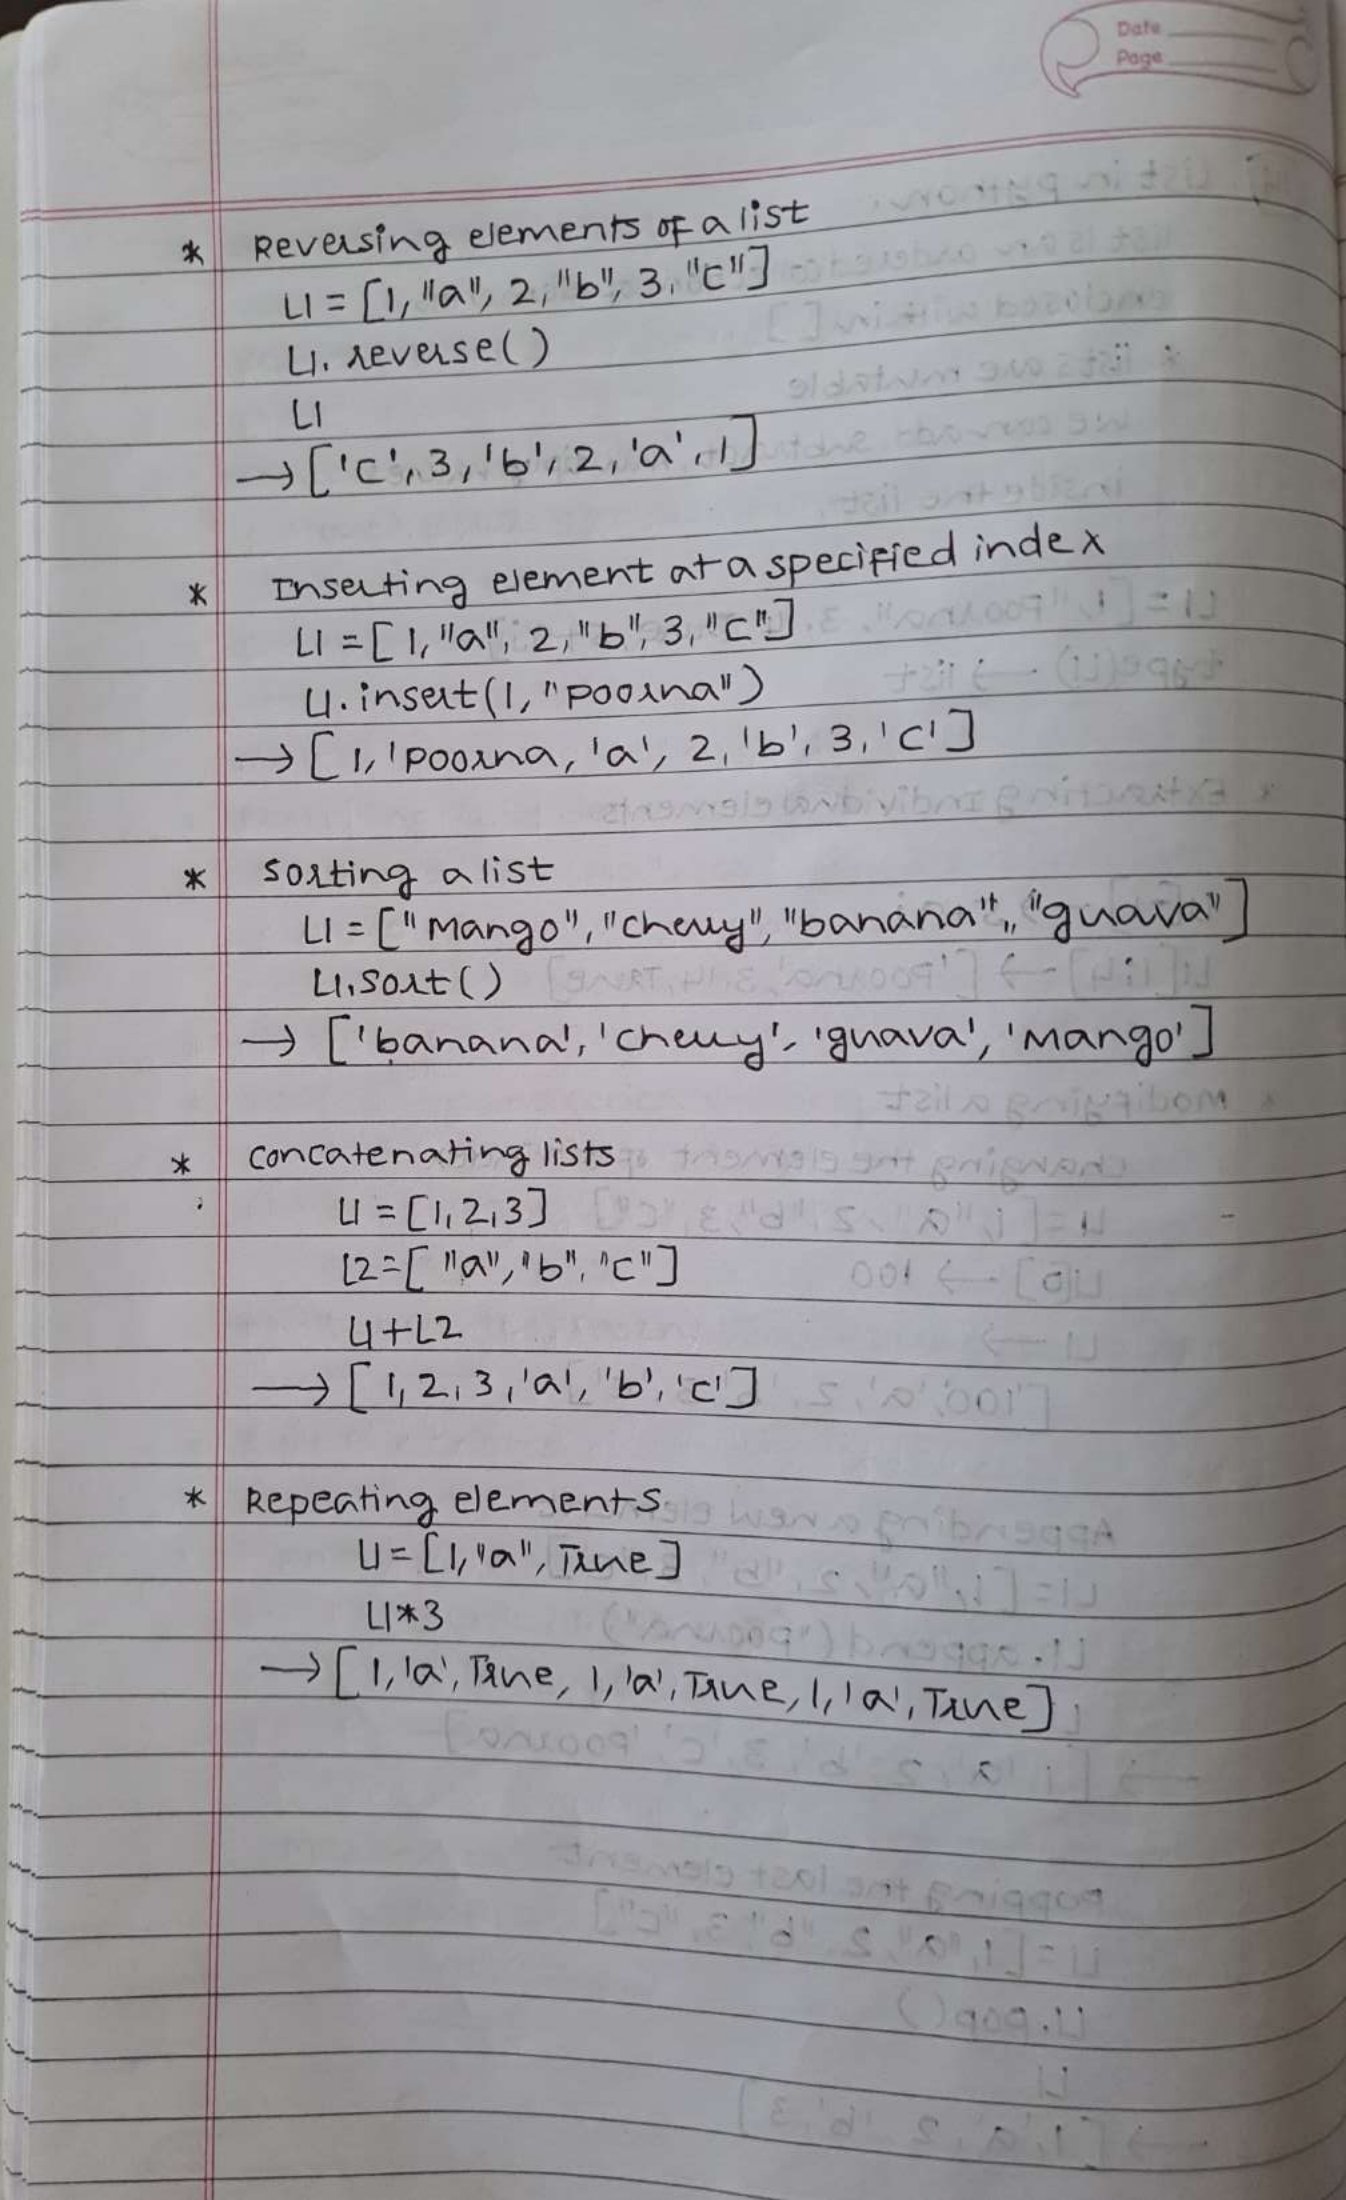 Date
Page
* Reversing elements of a list
L1 = [1, "a", 2, "b", 3, "c"]
L1. reverse()
L1
→ ['c', 3, 'b', 2, 'a', 1]
* Inserting element at a specified index
L1 = [1, "a", 2, "b", 3, "c"]
L1. insert(1, "poorna")
→ [1, 'poorna, 'a', 2, 'b', 3, 'c']
* Sorting a list
L1 = ["Mango", "cherry", "banana", "guava"]
L1. sort()
→ ['banana', 'cherry', 'guava', 'mango']
* concatenating lists
L1 = [1, 2, 3]
L2 = ["a", "b", "c"]
L1+L2
→ [1, 2, 3, 'a', 'b', 'c']
* Repeating elements
L1 = [1, "a", True]
L1*3
→ [1, 'a', True, 1, 'a', True, 1, 'a', True]